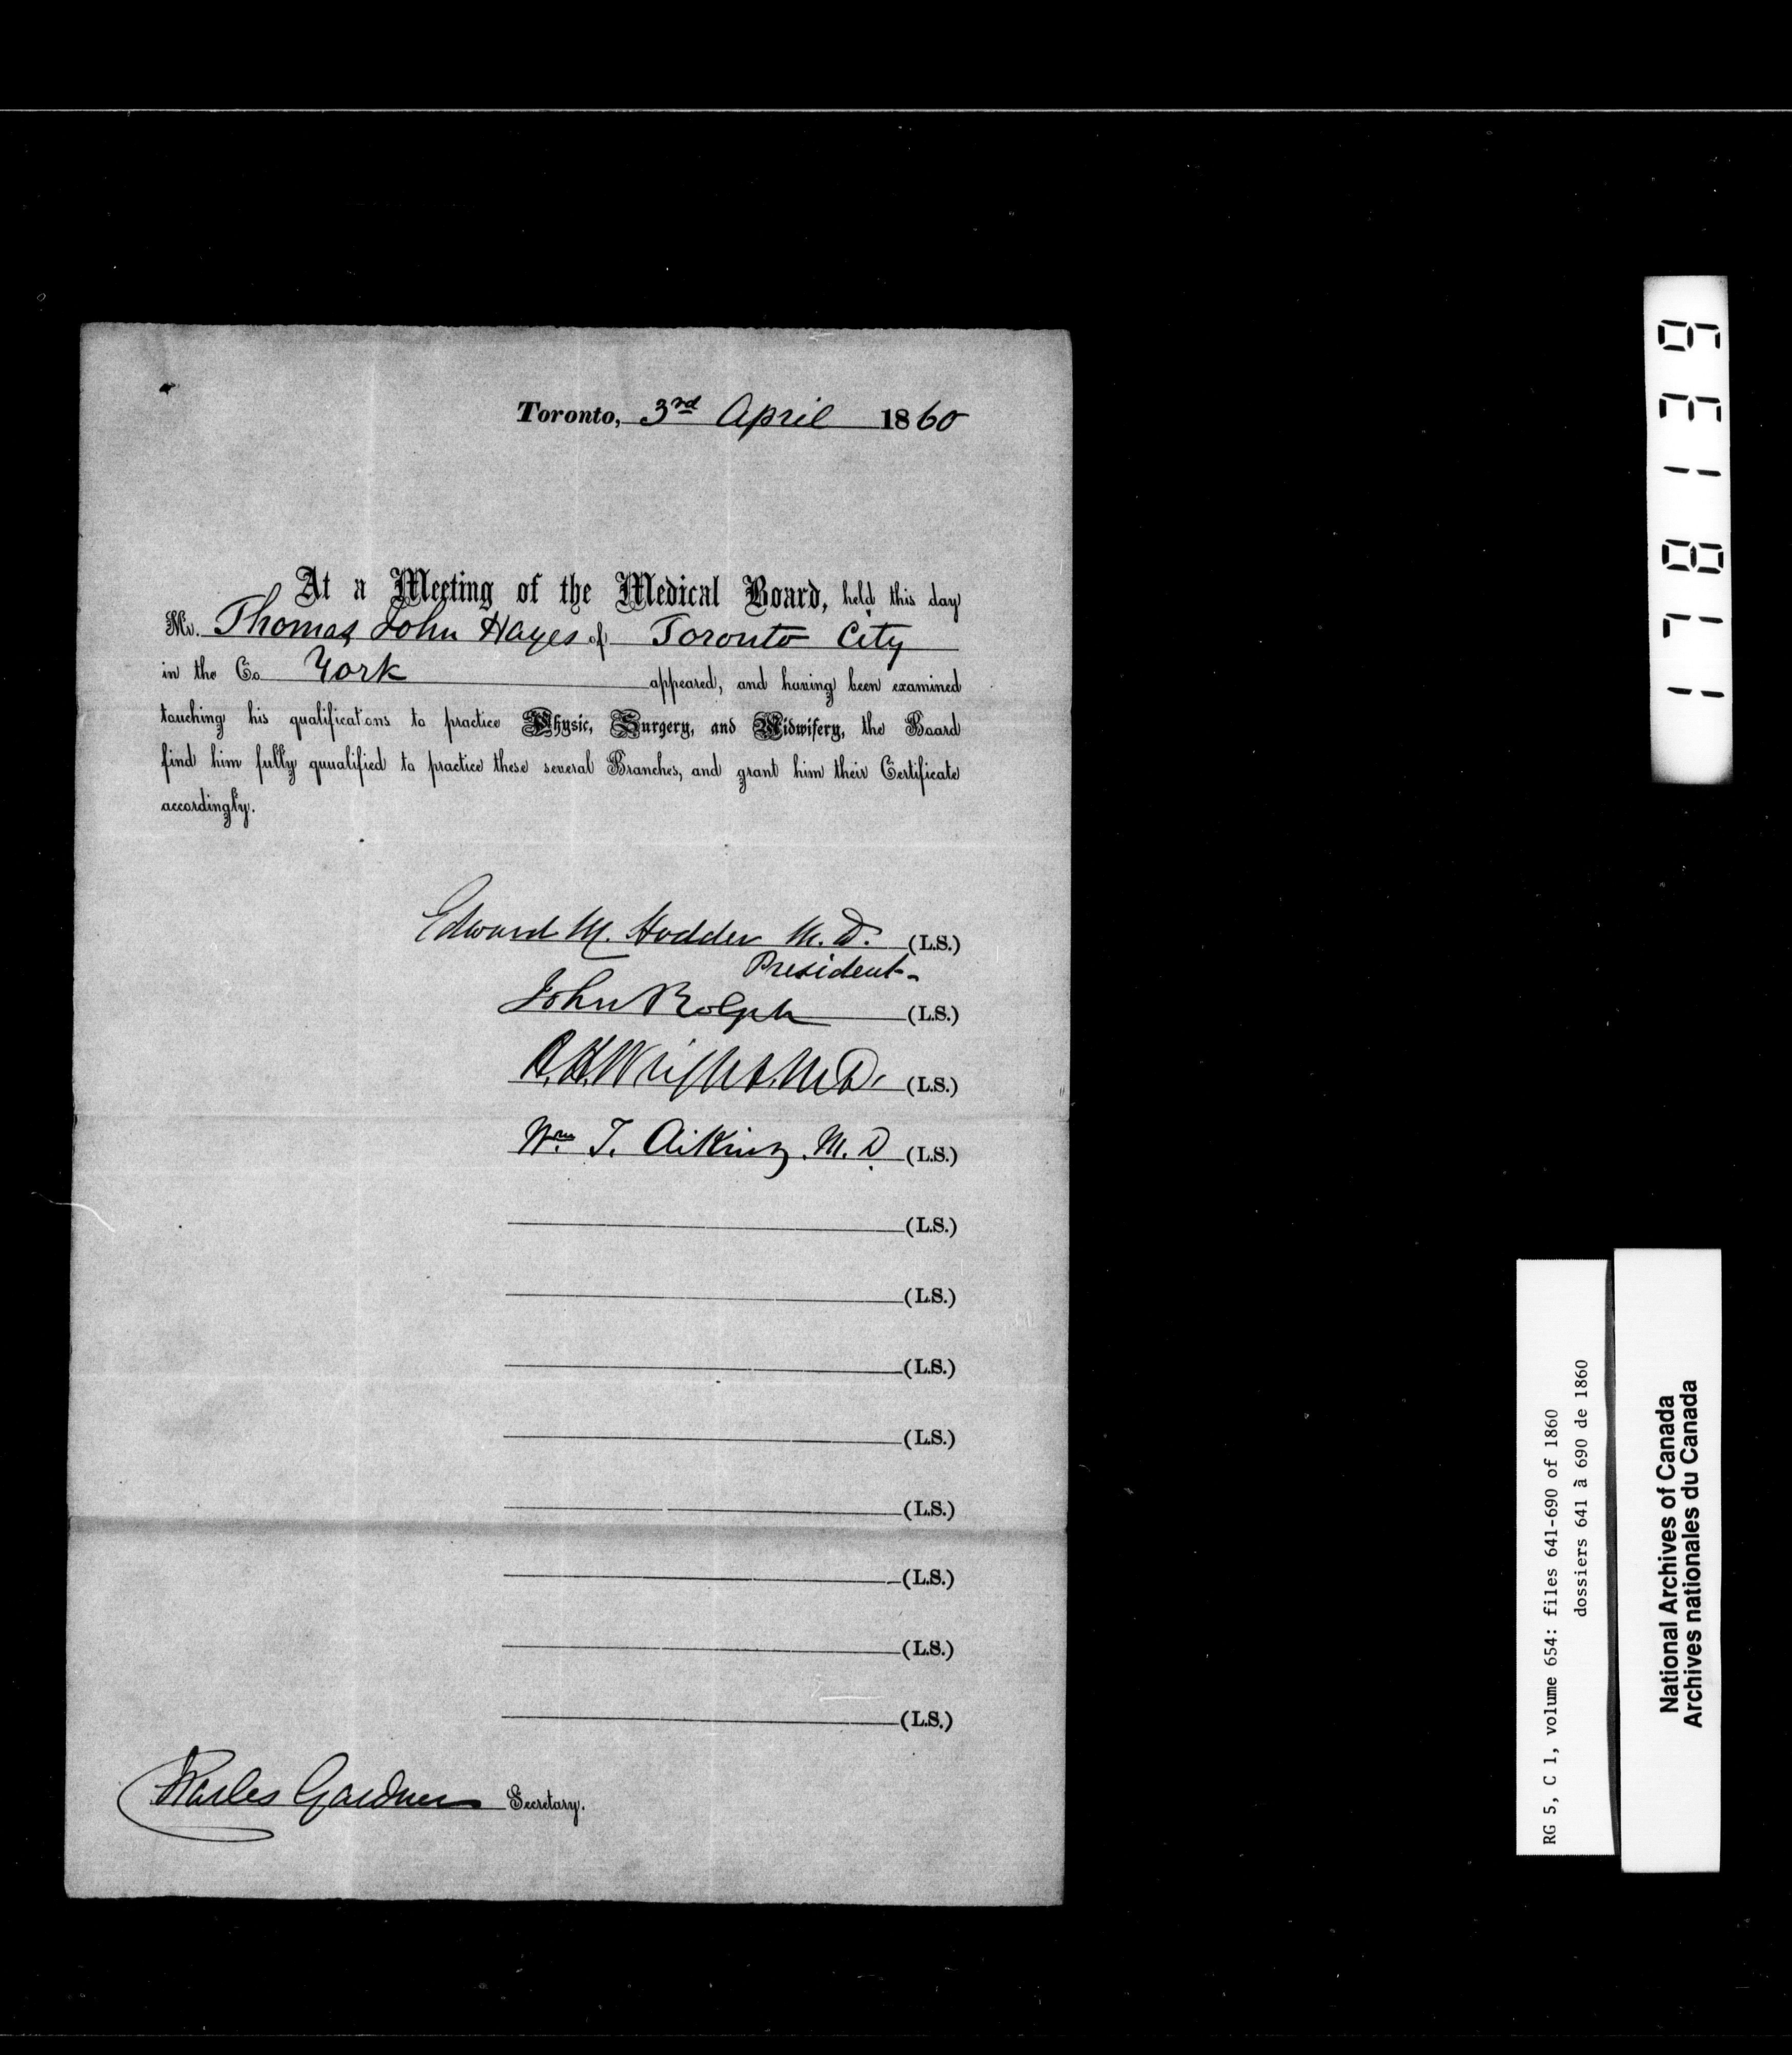 Toronto, 3rd April 1860
At a Meeting of the Medical Board, held this day
Mr. Thomas John Hayes of Toronto City
in the Co York appeared, and having been examined
touching his qualifications to practice Physic, Surgery, and Midwifery, the Board
find him fully quualified to practice these several Branches, and grant him their Certificate
accordingly.
Edward M. Hodder M.D. (L.S.)
President.
John Rolph (L.S.)
H.H. Wright. M.D. (L.S.)
Wm T. Aikins M.D. (L.S.)
(L.S.)
(L.S.)
(L.S.)
(L.S.)
(L.S.)
(L.S.)
(L.S.)
(L.S.)
Charles Gardner Secretary.
171819
RG 5, C 1, volume 654: files 641-690 of 1860
dossiers 641 à 690 de 1860
National Archives of Canada
Archives nationales du Canada